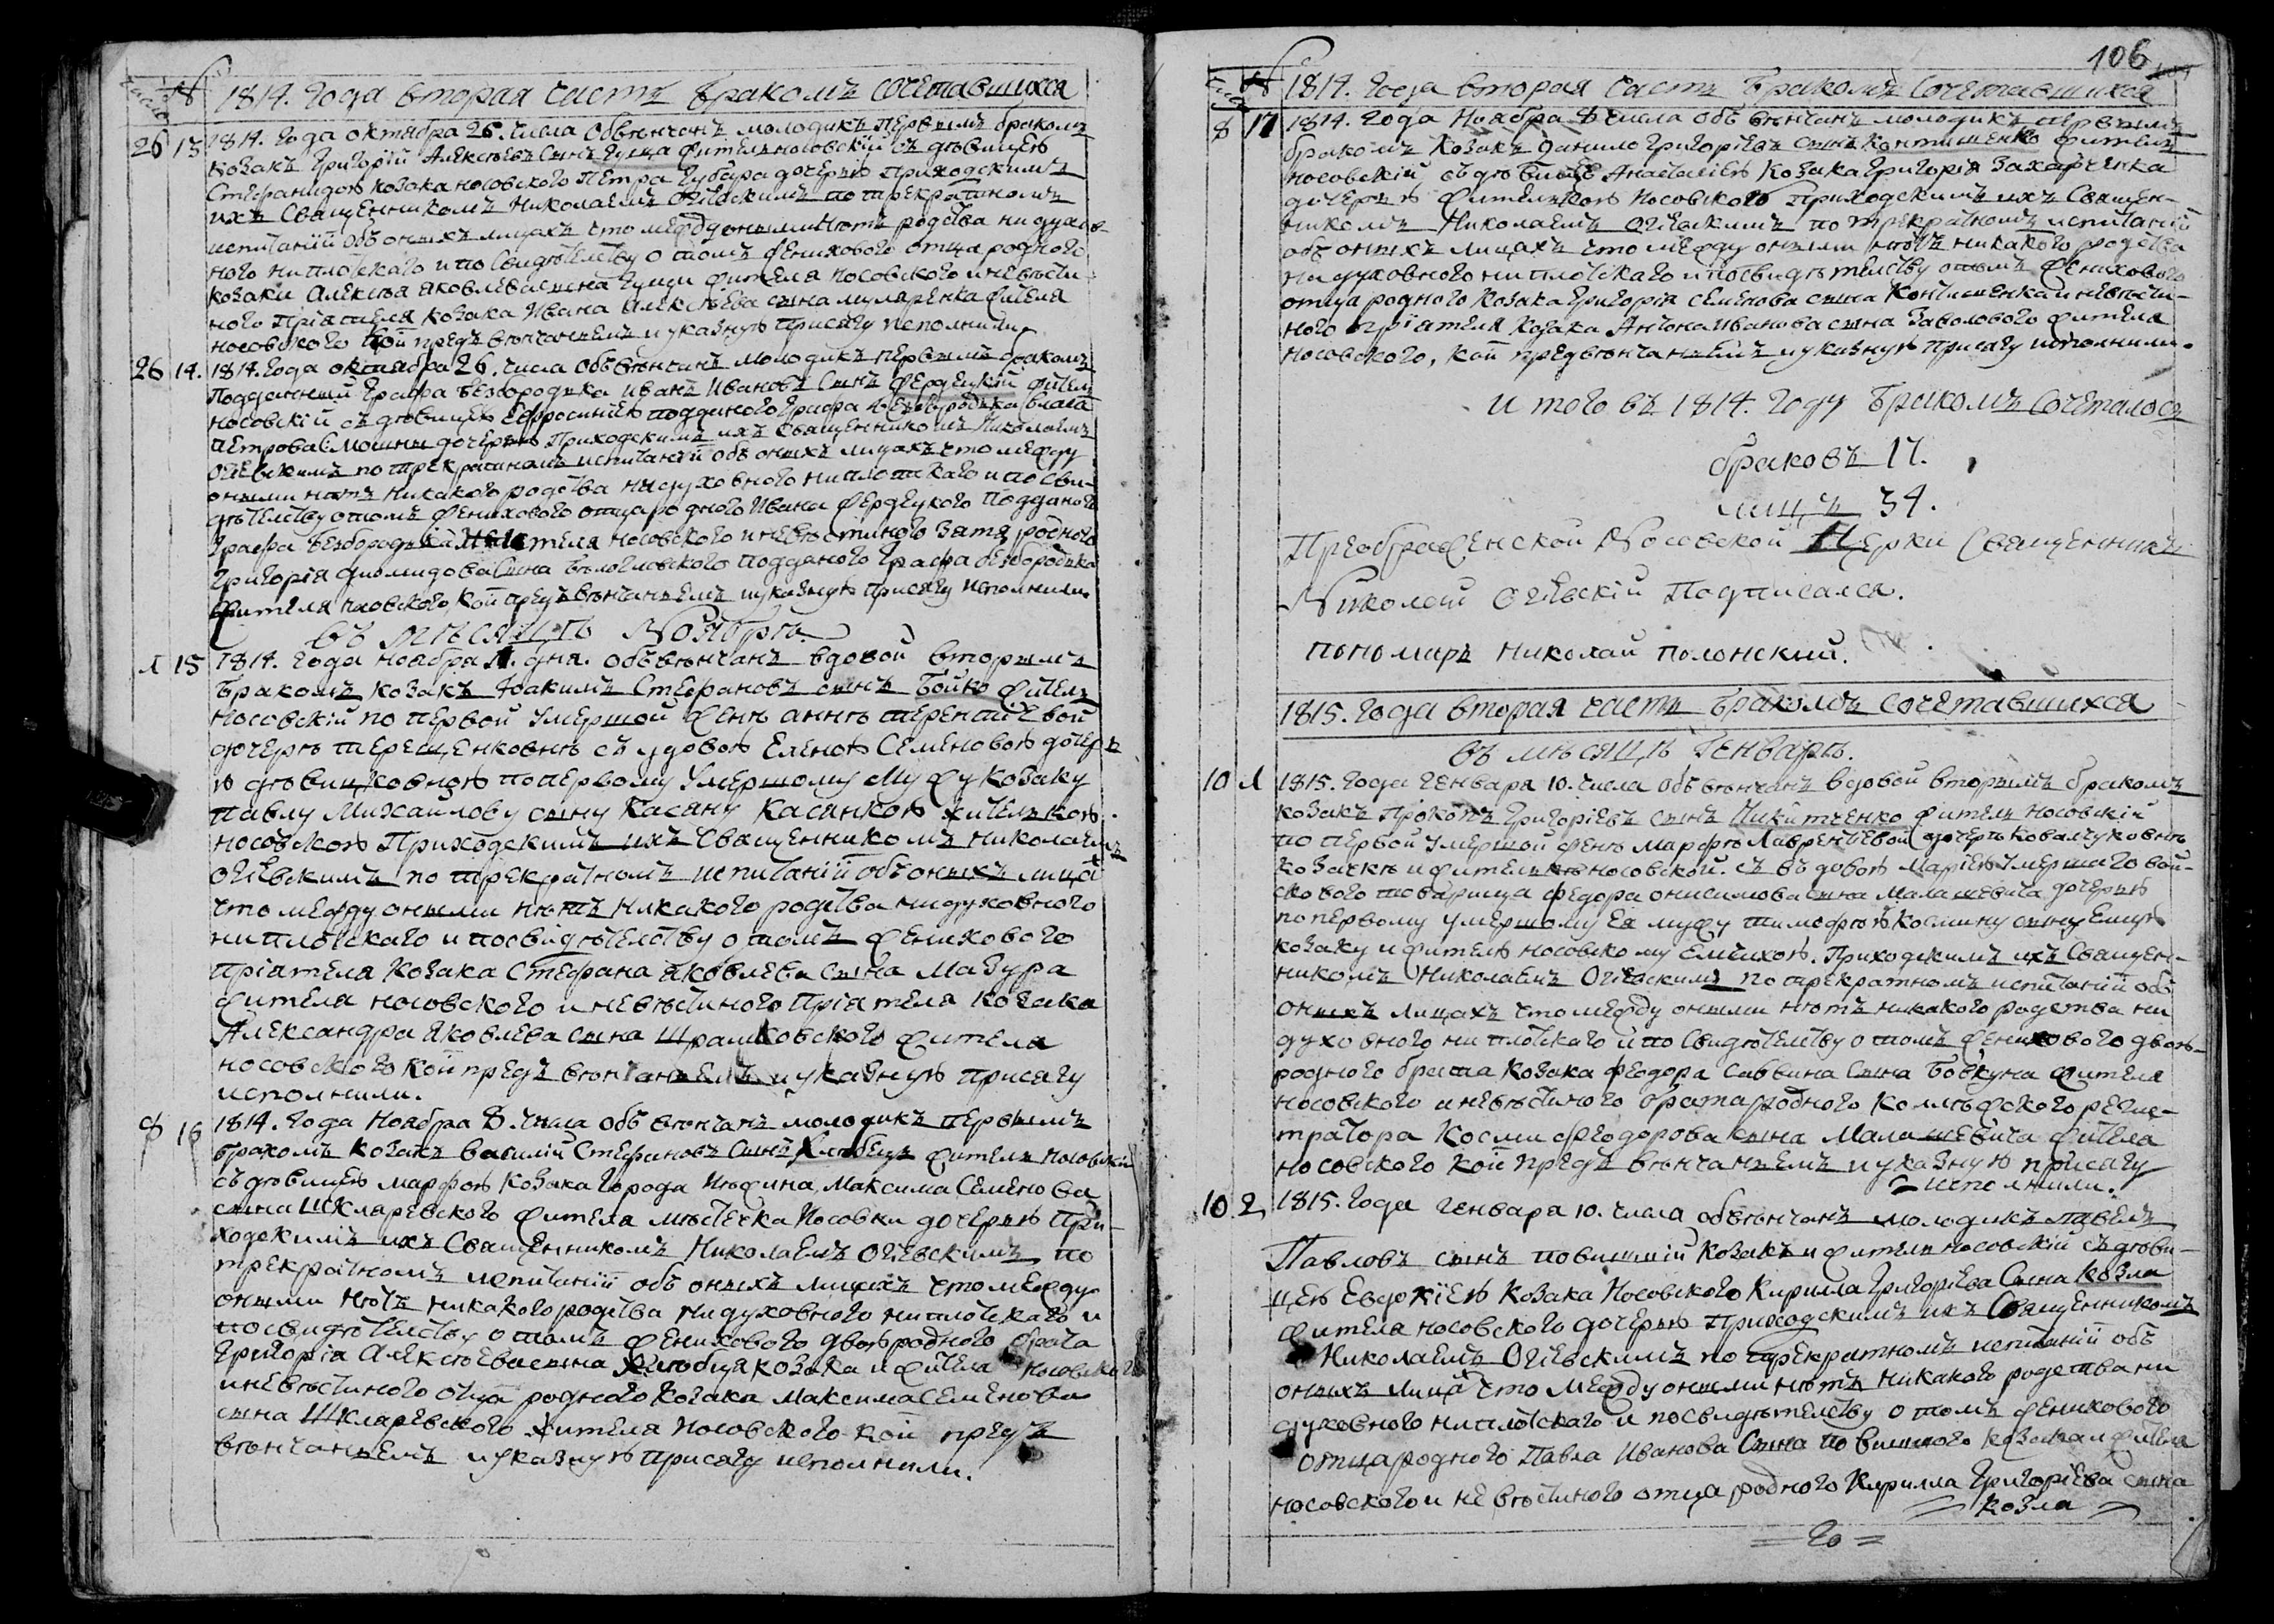 число № 1814. Года вторая часть бракомъ сочетавшихся
26 13 1814. Года октября 26. числа обвѣнчанъ молодикъ первымъ бракомъ
козакъ Григорій Алексѣевъ сынъ Гуща житель носовскій съ дѣвицею
Стефанидою козака носовского Петра Губара дочерью приходскимъ
ихъ Священникомъ Николаемъ Огіевскимъ по трекратномъ
испитаніи объ оныхъ лицахъ что между оными нѣтъ родства ни духов-
ного ни плотского и по свидѣтелству о томъ женихового отца родного
козака Алексѣя Яковлева сына Гущи жителя носовского и невѣсти-
ного пріятеля козака Ивана Алексѣева сына муляренка жителя
носовского кои предъ вѣнчаньемъ и указную присягу исполнили
26 14. 1814. Года октября 26. числа обвѣнчанъ молодикъ первымъ бракомъ
Подданный Графа Безбородка Иванъ Ивановъ сынъ Фердецкій житель
носовскій съ дѣвицею Ефросиніею подданого Графа Безбородка Власа
Петрова Смошны дочерью Приходскимъ ихъ Священникомъ Николаемъ
Огіевскимъ по трекратномъ испитаніи объ оныхъ лицахъ что между
оными нѣтъ никакого родства ни духовного ни плотского и по сви-
дѣтелству о томъ женихового отца родного Ивана Фердецкого подданого
Графа Безбородка жителя носовского и невѣстиного зятя родного
Григорія Диомидова сына подданого Графа Безбородка
жителя носовского, кои предъ вѣнчаньемъ и указную присягу исполнили
въ мѣсяцѣ Ноябрѣ
1 15 1814. года ноября 1. дня. обвѣнчанъ вдовой вторымъ
бракомъ козакъ Іоакимъ Стефановъ сынъ Бойко житель
носовскій по первой умершой женѣ аннѣ терентіевой
дочерѣ терещенковнѣ съ удовою Еленою Семеновою дочерь
ю дѣвицковною по первому умершому мужу козаку
павлу Михаилову сыну Касяну Касянкою жителькою
носовскою Приходскимъ ихъ Священникомъ николаемъ
огіевскимъ по трекратномъ испитаніи объ оныхъ лицахъ
что между оными нѣтъ никакого родства ни духовного
ни плотского и по свидѣтелству о томъ женихового
пріятеля козака Стефана Яковлева сына Мазура
жителя носовского и невѣстиного пріятеля козака
Александра Яковлева сына Шрамковского жителя
носовского кои предъ вѣнчаньемъ и указную присягу
исполнили.
8 16 1814. года Ноября 8. числа обвѣнчанъ молодикъ первымъ
бракомъ козакъ василій Стефановъ сынъ Хлѣбецъ житель носовскій
съ дѣвицею марфою козака города Нѣжина, Максима Семенова
сына Шкляревского жителя мѣстечка Носовки дочерью При-
ходскимъ ихъ Священникомъ Николаемъ Огіевскимъ по
трекратномъ испитаніи объ оныхъ лицахъ что между
оными нѣтъ никакого родства ни духовного ни плотского и
по свидѣтелству о томъ женихового двоюродного брата
Григорія Алексѣева сына Хлѣбця козака и жителя носовского
и невѣстиного отца родного козака Максима Семенова
сына Шкляревского жителя носовского кои предъ
вѣнчаньемъ и указную присягу исполнили.
106
число № 1814. Года вторая часть бракомъ Сочетавшихся
8 17 1814. Года Ноября 8 числа обвѣнчанъ молодикъ первымъ
бракомъ козакъ Данило Григоріевъ сынъ Контишенко житель
носовскій съ дѣвицею Анастасіею козака Григорія Захарченка
дочерью жителькою Носовского Приходскимъ ихъ Священ-
никомъ Николаемъ Огіевскимъ по трекратномъ испитаніи
объ оныхъ лицахъ что между оными нѣтъ никакого родства
ни духовного ни плотского и по свидѣтелству о томъ женихового
отца родного козака Григорія Семенова сына Контишенка и невѣсти-
ного пріятеля козака Антона Иванова сына Заволового жителя
носовского, кои предъ вѣнчаньемъ и указную присягу исполнили.
И того въ 1814. Году Бракомъ сочеталось
браковъ 17.
лицъ 34.
Преображенской Носовской Церкви Священникъ
Николай Огіевскій Подписался.
пономарь николай полонский.
1815. Года вторая часть Бракомъ сочетавшихся
въ мѣсяцѣ Генварѣ.
10 1 1815. Года Генваря 10. числа обвѣнчанъ вдовой вторымъ бракомъ
козакъ Прокопъ Григоріевъ сынъ Никитченко житель носовскій
по первой умершой женѣ Марфѣ Лаврентіевой дочерѣ Ковалчуковнѣ
козачкѣ и жителькѣ носовской. съ вдовою Маріею умершого вой-
скового товарища Федора онисимова сына Малашевича дочерью
по первому умершому Ея мужу тимофѣю Космину сыну Емцу
козаку и жителю носовскому Емцихою. Приходскимъ ихъ Священ-
никомъ Николаемъ Огіевскимъ по трекратномъ испитаніи объ
оныхъ лицахъ что между оными нѣтъ никакого родства ни
духовного ни плотского и по свидѣтелству о томъ женихового двою-
родного брата козака Феодора Саввина сына Бовкуна жителя
носовского и невѣстиного брата родного Коллѣжского регис-
тратора Космы Феодорова сына Малашевича жителя
носовского кои предъ вѣнчаньемъ и указную присягу
исполнили.
10 2 1815. Года генваря 10. числа обвѣнчанъ молодикъ павелъ
Павловъ сынъ повишній козакъ и житель носовскій съ дѣви-
цею Евдокіею козака Носовского Кирилла Григоріева Сына Козла
жителя носовского дочерью приходскимъ ихъ Священникомъ
Николаемъ Огіевскимъ по трекратномъ испитаніи объ
оныхъ лицахъ что между оными нѣтъ никакого родства ни
духовного ни плотского и по свидѣтелству о томъ женихового
отца родного Павла Иванова Сына повишного козака и жителя
носовского и невѣстиного отца родного Кирилла Григоріева сына
козла